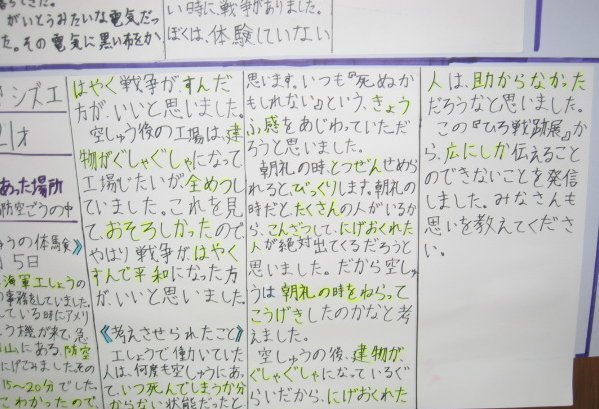 がいとうみたいな電気だっ
た。その電気に黒い布をか
い時に、戦争がありました。
ぼくは、体験していない
シズエ
21才
あった場所
防空ごうの中
しゅうの体験》
月5日
海軍工しょうの
の事務をしていました。
している時にアメリ
う機が来て、急
山にある、防空
にげこみました。その
15～20分でした。
こわかったので、
はやく戦争が、すんだ
方が、いいと思いました。
空しゅう後の工場は、建
物がぐしゃぐしゃになって
工場じたいが、全めつし
ていました。これを見
て、おそろしかったので、
やはり戦争が、はやく
すんで平和になった方
が、いいと思いました。
《考えさせられたこと》
工しょうで働いていた
人は、何度も空しゅうにあ
って、いつ死んでしまうか分
からない状態だったと
思います。いつも『死ぬか
もしれない』という、きょう
ふ感をあじわっていただ
ろうと思いました。
朝礼の時、とつぜんせめ
られると、びっくりします。朝礼の
時だと、たくさんの人がいるか
ら、こんざつして、にげおくれた
人が絶対出てくるだろうと
思いました。だから空しゅ
うは朝礼の時をねらって
こうげきしたのかなと考
えました。
空しゅうの後、建物が、
ぐしゃぐしゃになっているぐ
らいだから、にげおくれた
人は、助からなかった
だろうなと思いました。
この『ひろ戦跡展』か
ら、広にしか伝えること
のできないことを発信
しました。みなさんも
思いを教えてくださ
い。